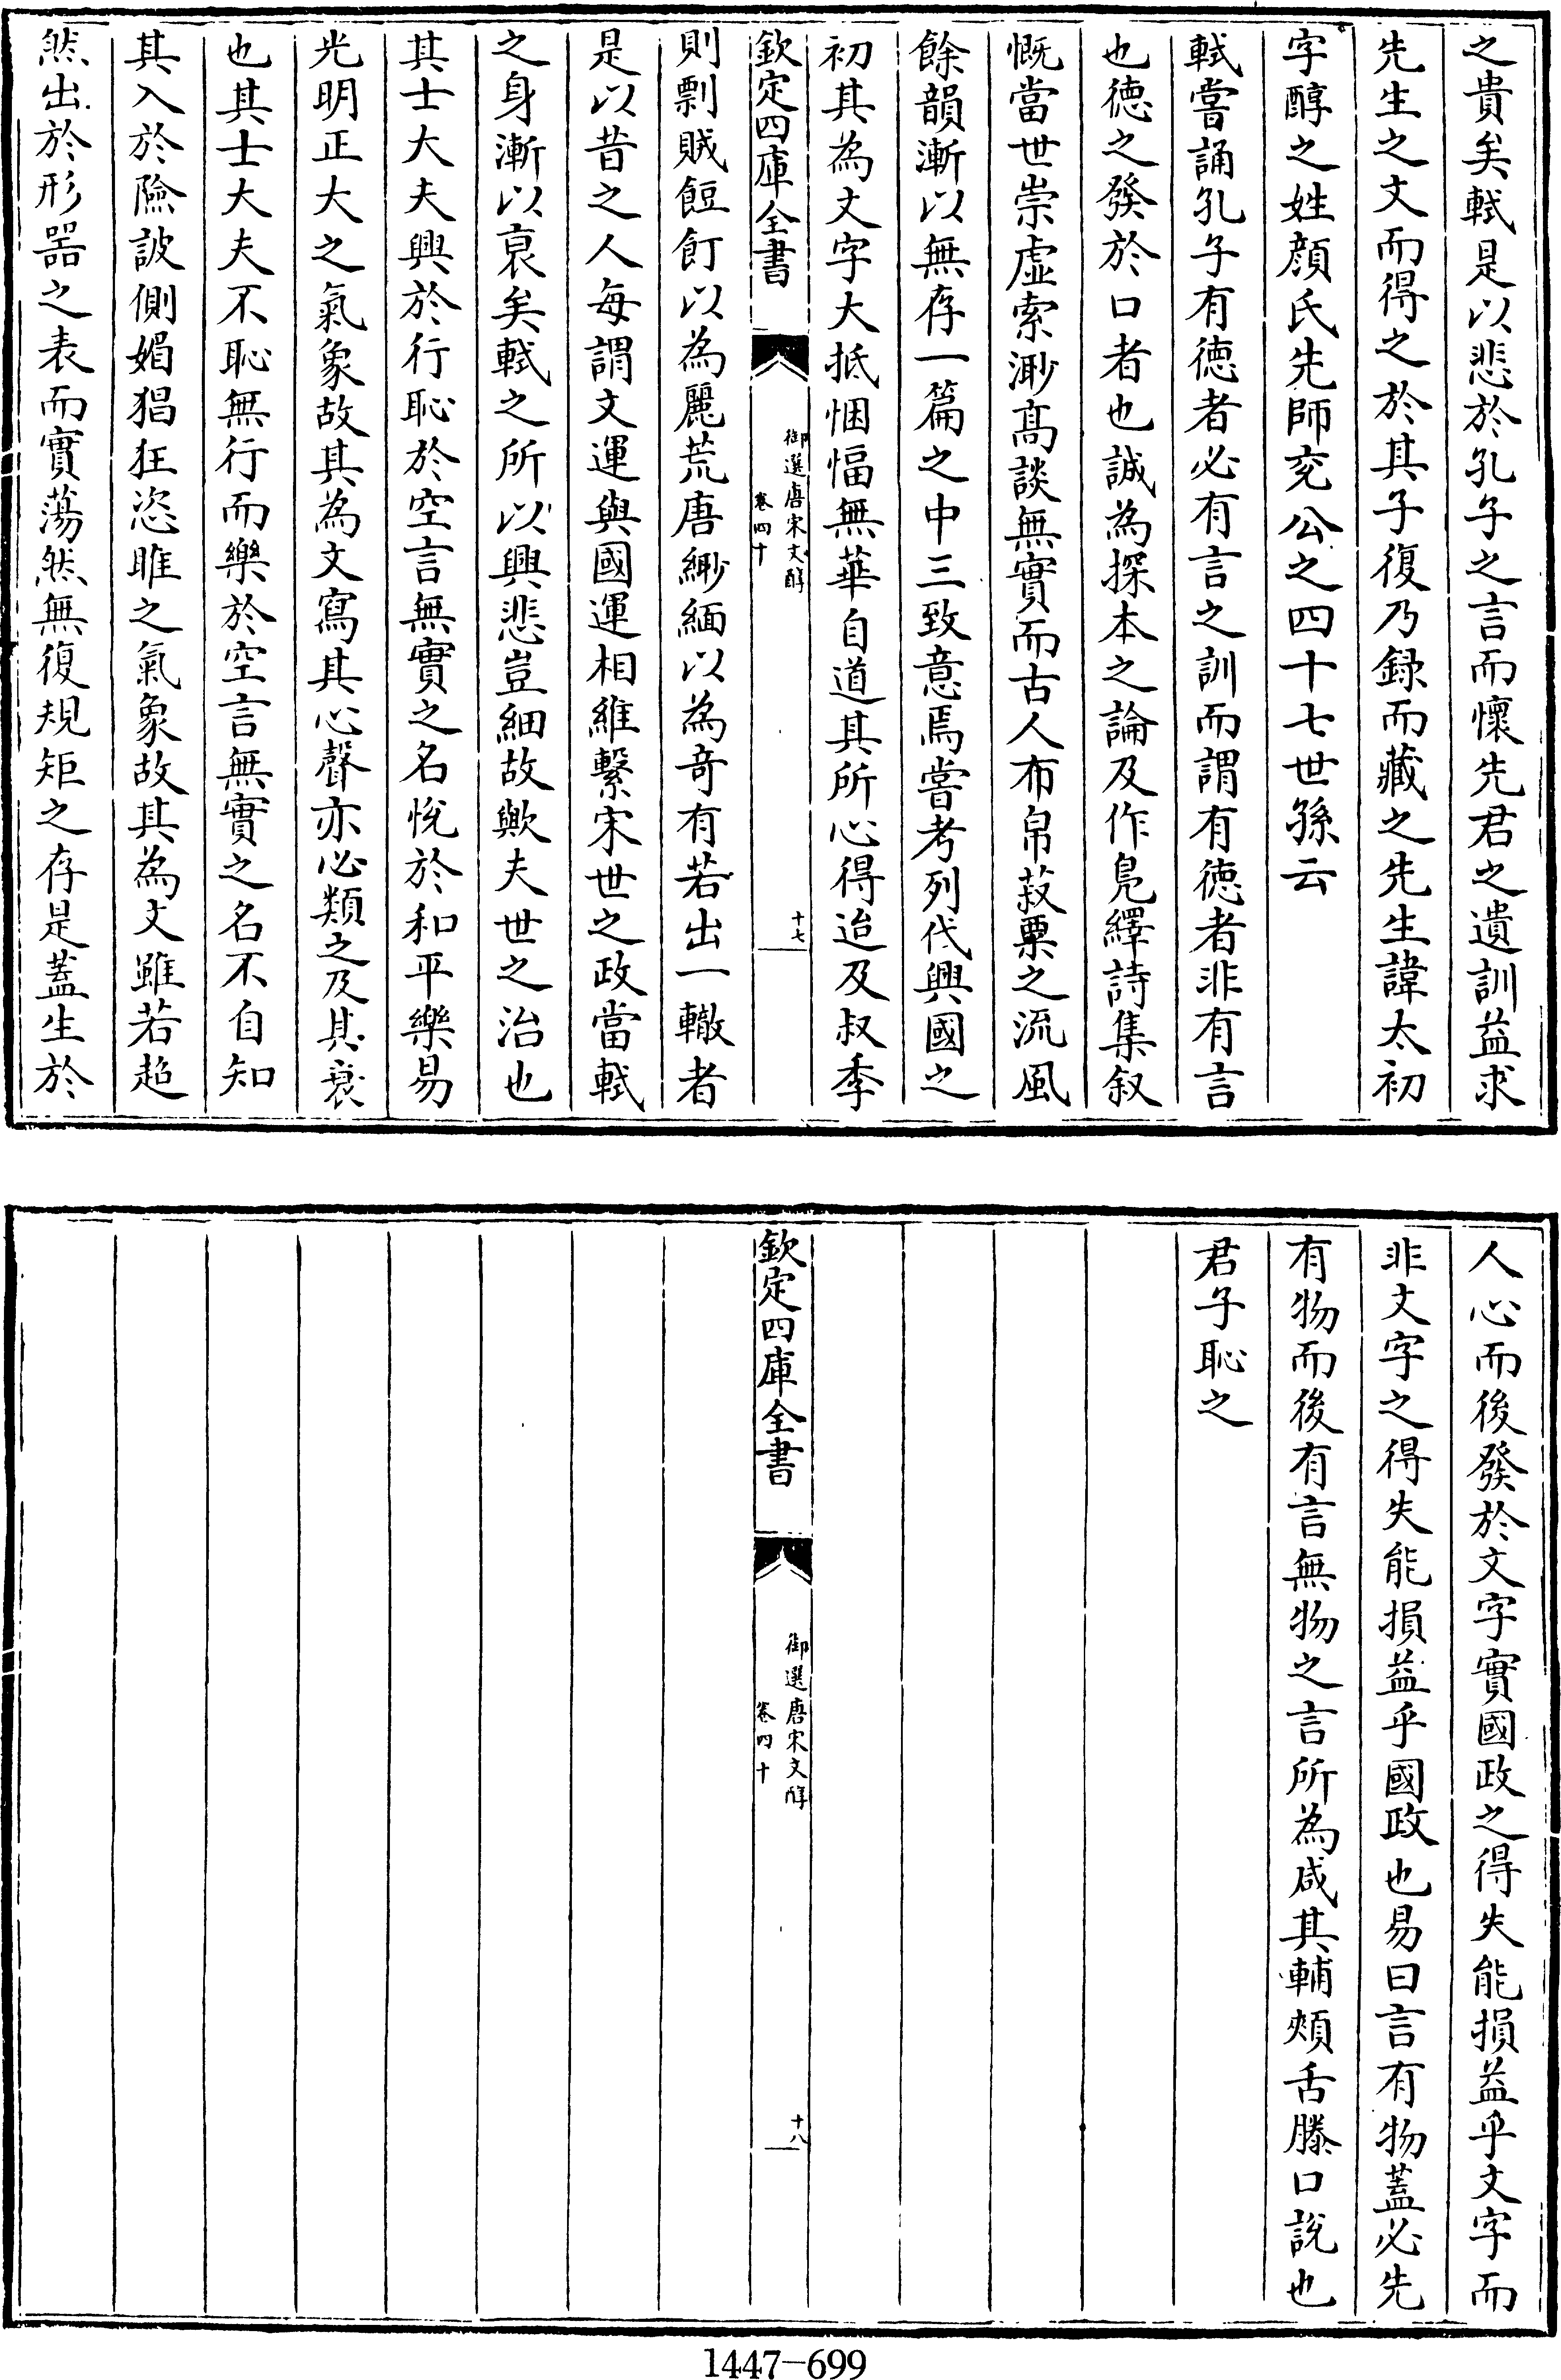 之貴矣軾是以悲於孔子之言而懷先君之遺訓益求
先生之文而得之於其子復乃録而藏之先生諱太初
字醇之姓顔氏先師兖公之四十七世孫云
軾嘗誦孔子有徳者必有言之訓而謂有徳者非有言
也徳之發於口者也誠為探本之論及作鳬繹詩集叙
慨當世崇虚索渺髙談無實而古人布帛菽粟之流風
餘韻漸以無存一篇之中三致意焉嘗考列代興國之
初其為文字大抵悃愊無華自道其所心得迨及叔季
欽定四庫全書
御選唐宋文醇
卷四十
十七
則剽賊飣餖以為麗荒唐緲緬以為竒有若出一轍者
是以昔之人每謂文運與國運相維繫宋世之政當軾
之身漸以裒矣軾之所以興悲豈細故歟夫世之治也
其士大夫興於行恥於空言無實之名悅於和平樂易
光明正大之氣象故其為文寫其心聲亦必類之及其衰
也其士大夫不恥無行而樂於空言無實之名不自知
其入於險詖側媚猖狂恣睢之氣象故其為文雖若超
然出於形器之表而實蕩然無復規矩之存是蓋生於
人心而後發於文字實國政之得失能損益乎文字而
非文字之得失能損益乎國政也易曰言有物蓋必先
有物而後有言無物之言所為咸其輔頰舌滕口說也
君子恥之
欽定四庫全書
御選唐宋文醇
卷四十
十八
1447-699